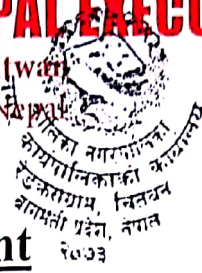 PAL EXECU
twan
Nepal
नगरपालिका
कार्यपालिकाको कार्यालय
चितवन
बागमती प्रदेश, नेपाल
२०७३
nt